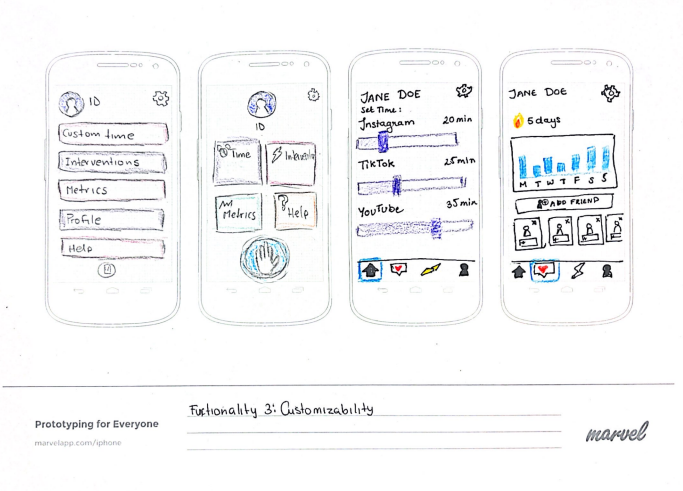 ID
Custom time
Interventions
Metrics
Profile
Help
ID
Time
Metrics
Help
JANE DOE
Set Time:
Instagram 20 min
TikTok 25 min
YouTube 35 min
JANE DOE
5 days
M T W T F S S
ADD FRIEND
Prototyping for Everyone
marvelapp.com/iphone
Functionality 3: Customizability
marvel